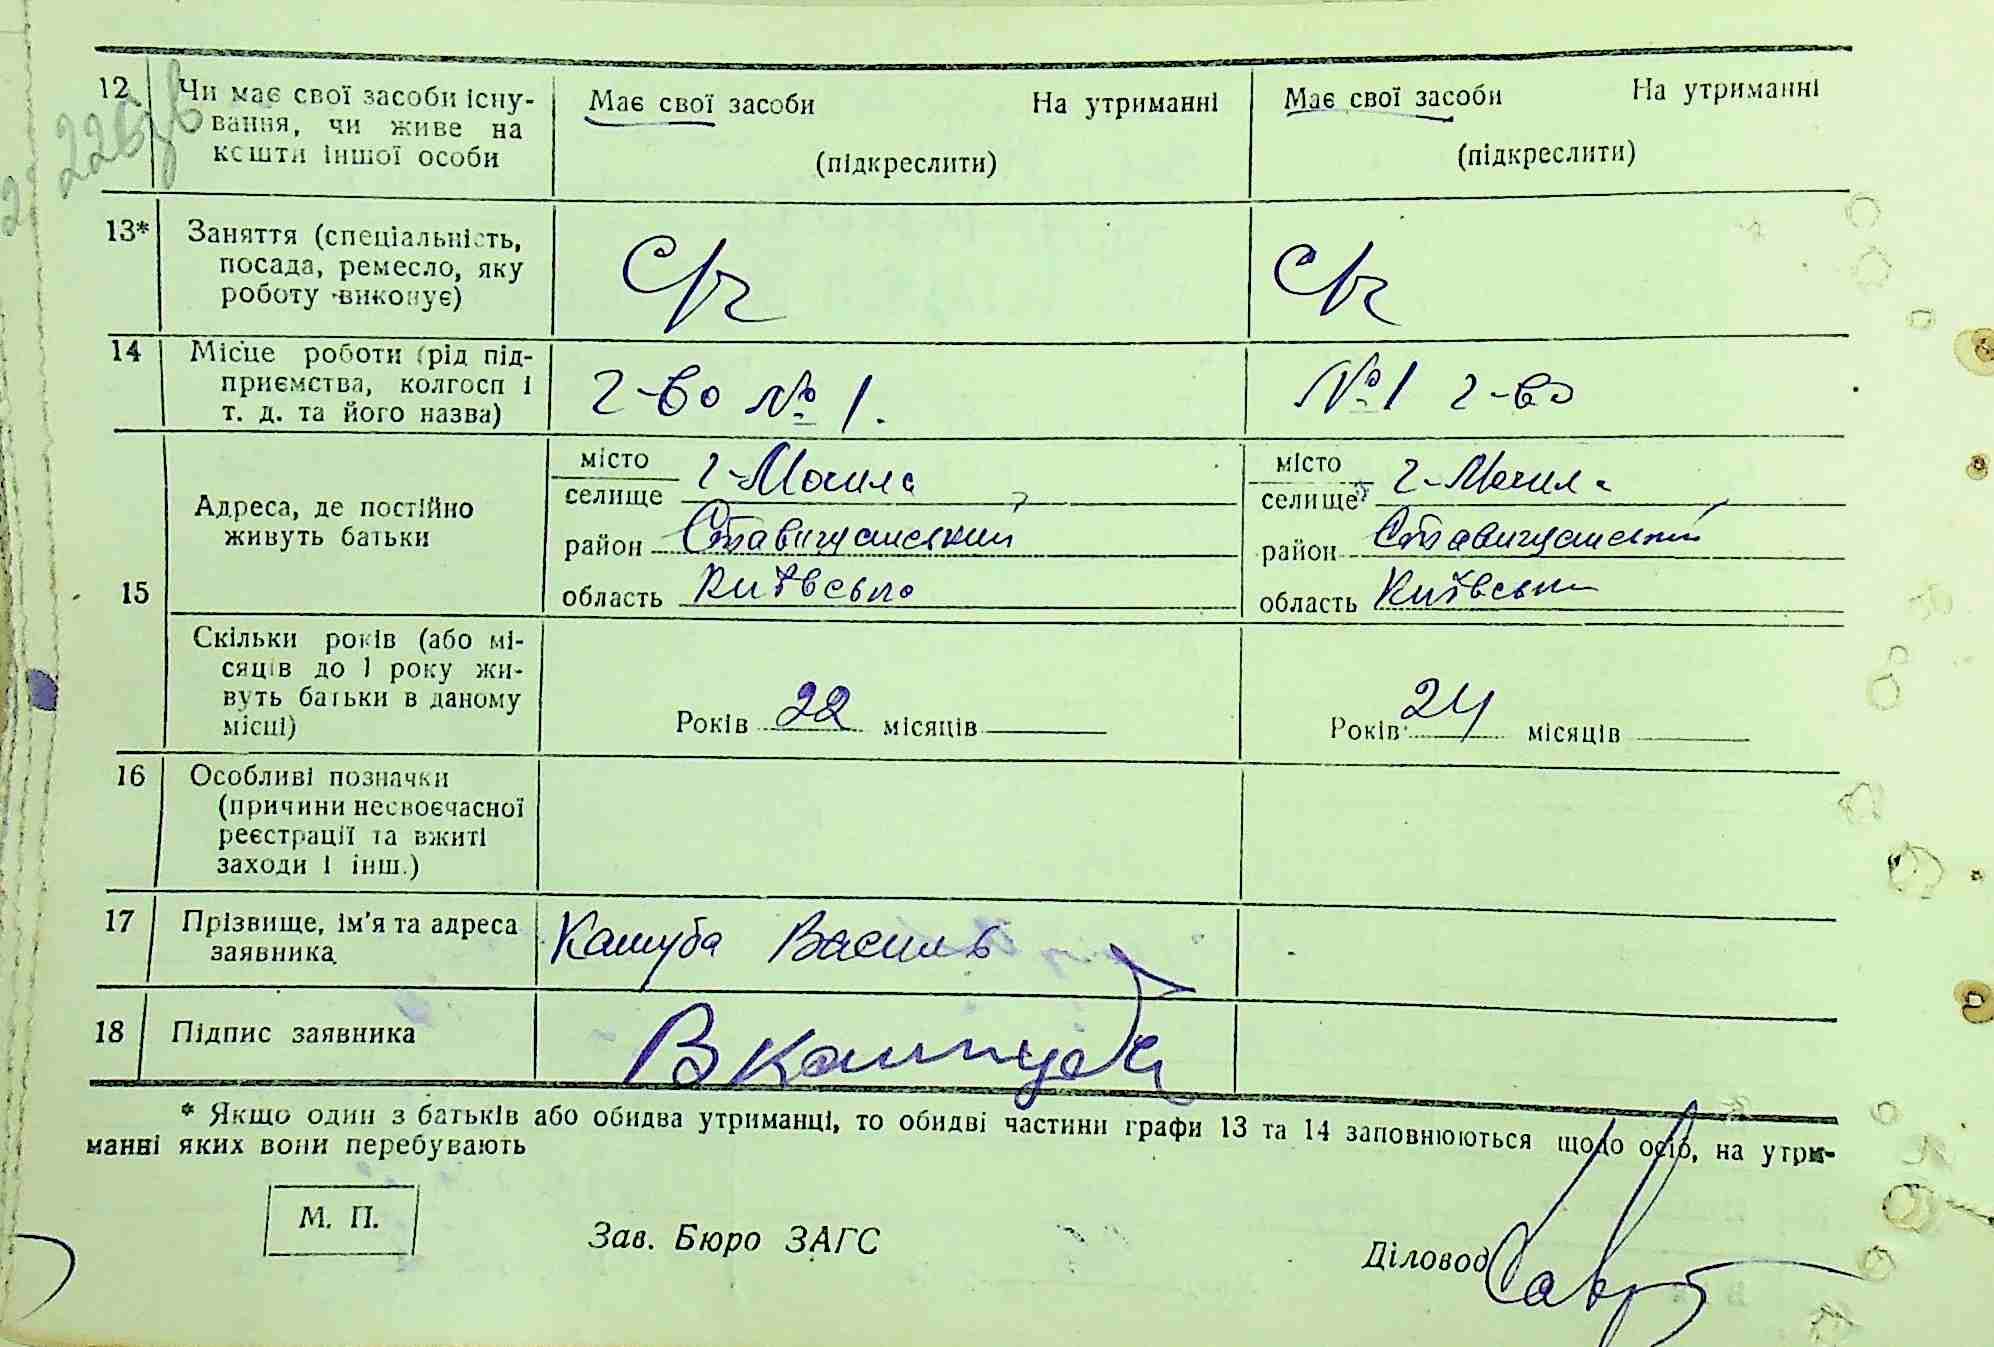 12 Чи має свої засоби існу-
вання, чи живе на
кошти іншої особи
Має свої засоби На утриманні
(підкреслити)
Має свої засоби На утриманні
(підкреслити)
13* Заняття (спеціальність,
посада, ремесло, яку
роботу виконує)
14 Місце роботи (рід під-
приємства, колгосп і
т. д. та його назва)
г-во № 1.
№ 1 г-во
15
Адреса, де постійно
живуть батьки
місто
селище г-Могила
район Ставищанський
область Київсько
місто
селище г-Могила
район Ставищанський
область Київськ
Скільки років (або мі-
сяців до 1 року жи-
вуть батьки в даному
місці)
Років 22 місяців
Років 24 місяців
16 Особливі позначки
(причини несвоєчасної
реєстрації та вжиті
заходи і інш.)
17 Прізвище, ім'я та адреса
заявника
Кашуба Василь
18 Підпис заявника
В Кашуба
* Якщо один з батьків або обидва утриманці, то обидві частини графи 13 та 14 заповнюються щодо осіб, на утри-
манні яких вони перебувають
М. П.
Зав. Бюро ЗАГС
Діловод